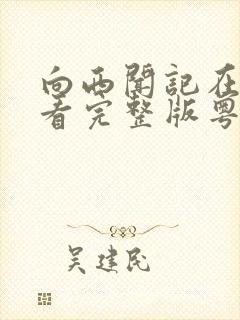 向西聞記在
看完整版粵
吴建民